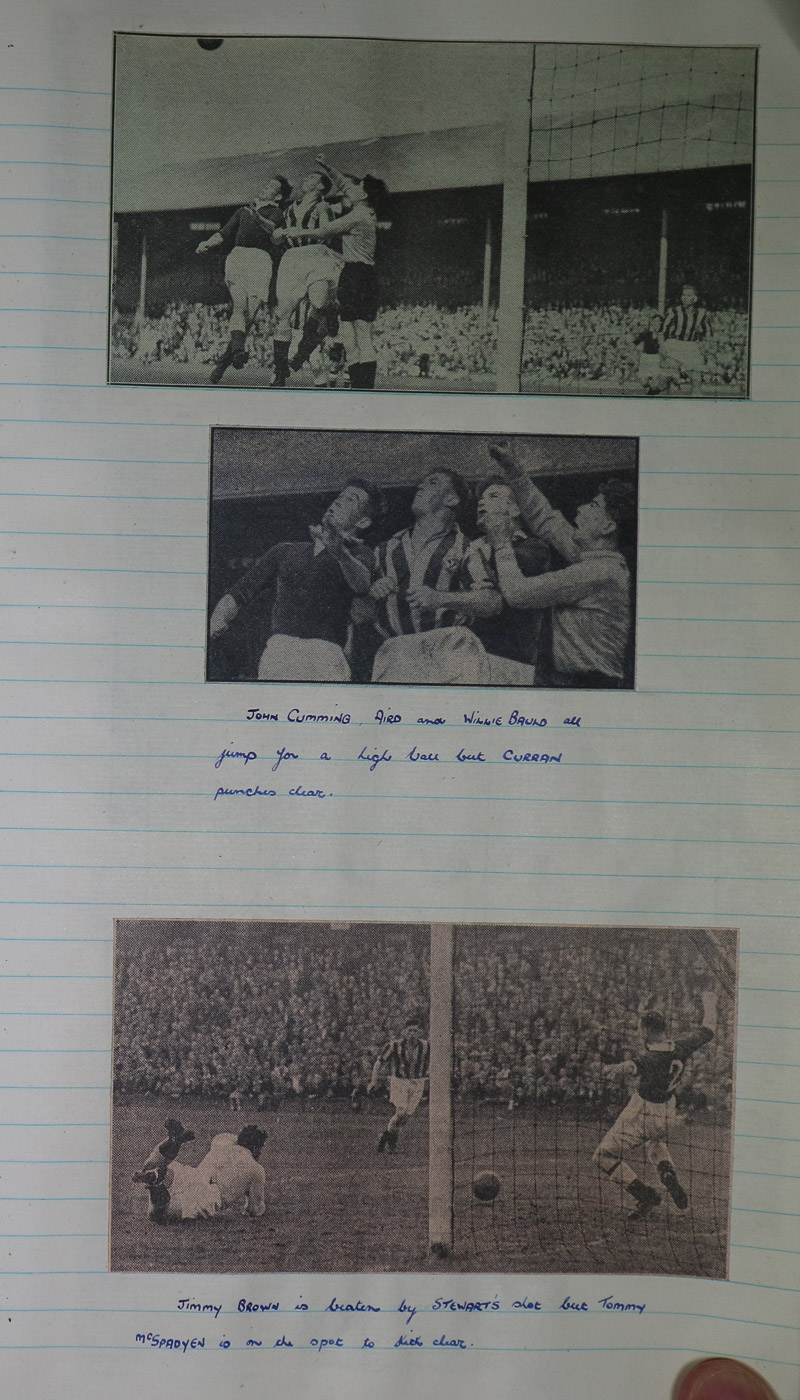 JOHN CUMMING, AIRD and WILLIE BAULD all
jump for a high ball but CURRAN
punches clear.
2
Jimmy BROWN is beaten by STEWART'S shot but Tommy
McSPADYEN is on the spot to kick clear.